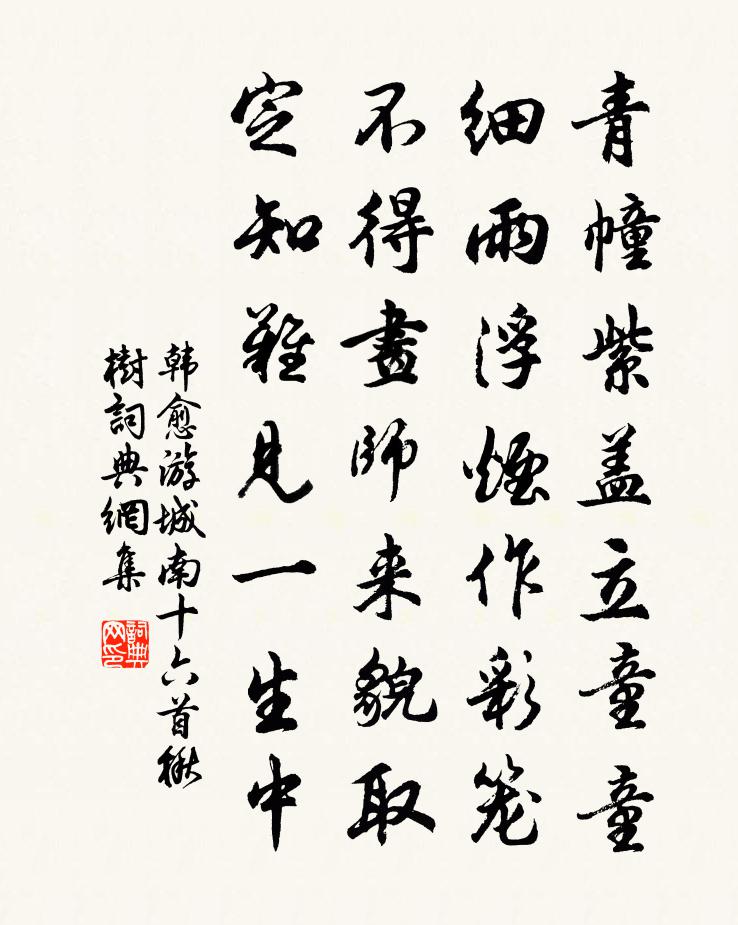 青幢紫盖立童童
细雨浮煙作彩笼
不得畫師来貌取
定知難見一生中
韩愈游城南十六首楸
樹詞典網集
詞典网印